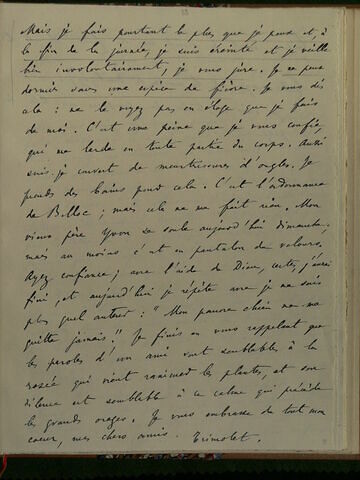 Mais je fais pourtant le plus que je peux et, à
la fin de la journée, je suis éreinté et je veille
bien involontairement, je vous jure. Je ne peux
dormir sans une espèce de fièvre. Je vous dis
cela : ne le voyez pas en éloge que je fais
de moi. C'est une peine que je vous confie,
qui me larde en toute partie du corps. Aussi
suis-je couvert de meurtrissures d'ongles. Je
prends des bains pour cela. C'est l'ordonnance
de Belloc ; mais cela ne me fait rien. Mon
vieux père Yvon se soule aujourd'hui dimanche.
mais au moins c'est en pantalon de velours,
Ayez confiance ; avec l'aide de Dieu, certes, j'aurai
fini et aujourd'hui je répète avec je ne sais
plus quel auteur : " Mon pauvre chien ne me
quitte jamais." Je finis en vous rappelant que
les paroles d'un ami sont semblables à la
rosée qui vient ranimer les plantes, et son
silence est semblable à ce calme qui précède
les grands orages. Je vous embrasse de tout mon
coeur, mes chers amis. Trimolet.